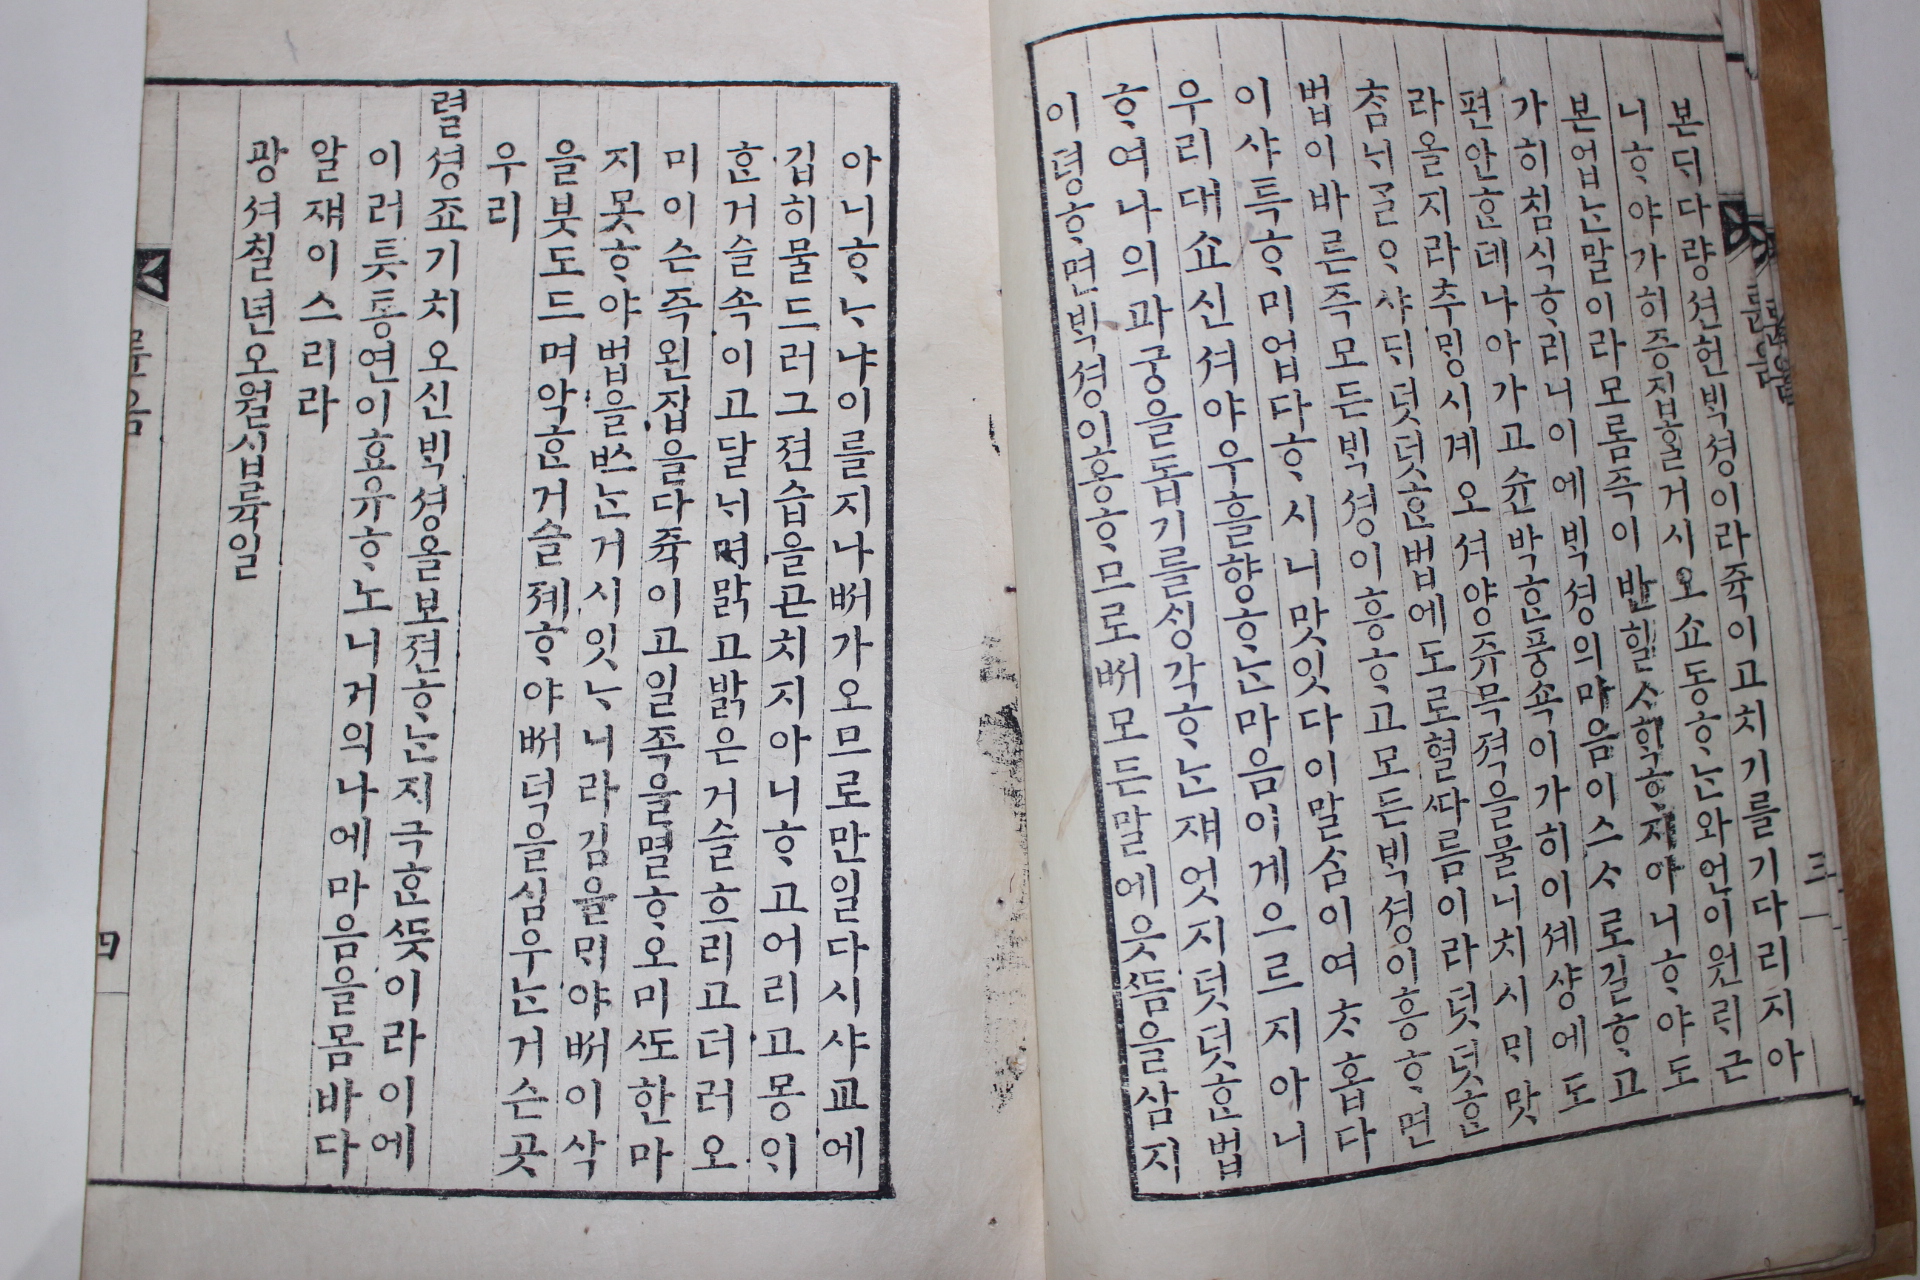 본ᄃᆡ다량션헌ᄇᆡᆨ셩이라쥭이고치기를기다리지아
니ᄒᆞ야가히증험ᄒᆞᆯ거시오쇼동ᄒᆞᄂᆞᆫ와언이원ᄅᆡ근
본업ᄂᆞᆫ말이라모롬즉이반힐ᄉᆞ학ᄒᆞ지아니ᄒᆞ야도
가히침식ᄒᆞ리니이에ᄇᆡᆨ셩의마음이스ᄉᆞ로길ᄒᆞ고
편안ᄒᆞᆫ데나아가고슌박ᄒᆞᆫ풍쇽이가히이셰샹에도
라올지라추밍시계오셔양쥬묵젹을물니치시ᄆᆡ맛
ᄎᆞᆷᄂᆡᄀᆞᆯᄋᆞ샤ᄃᆡ덧덧ᄒᆞᆫ법에도로혈ᄯᅡ름이라덧덧ᄒᆞᆫ
법이바른즉모든ᄇᆡᆨ셩이흥ᄒᆞ고모든ᄇᆡᆨ셩이흥ᄒᆞ면
이샤특ᄒᆞ미업다ᄒᆞ시니맛잇다이말ᄉᆞᆷ이여ᄎᆞ홉다
우리대쇼신셔야우흘향ᄒᆞᄂᆞᆫ마음이게으르지아니
ᄒᆞ여나의과궁을돕기를ᄉᆡᆼ각ᄒᆞᄂᆞᆫ쟤엇지덧덧ᄒᆞᆫ법
이뎡ᄒᆞ면ᄇᆡᆨ셩이흥ᄒᆞ므로ᄡᅥ모든말에읏듬을삼지
륜음
三
아니ᄒᆞᄂᆞ냐이를지나ᄡᅥ가오므로만일다시샤교에
깁히물드러그젼습을곤치지아니ᄒᆞ고어리고몽ᄆᆡ
ᄒᆞᆫ거슬속이고달ᄂᆡ면맑고밝은거슬흐리고더러오
미이슨즉왼집을다쥭이고일족을멸ᄒᆞ오미ᄯᅩ한마
지못ᄒᆞ야법을ᄡᅳᄂᆞᆫ거시잇ᄂᆞ니라김을ᄆᆡ야ᄡᅥ이삭
을붓도드며악ᄒᆞᆫ거슬졔ᄒᆞ야ᄡᅥ덕을심우ᄂᆞᆫ거슨곳
우리
렬셩죠기치오신ᄇᆡᆨ셩을보젼ᄒᆞᄂᆞᆫ지극ᄒᆞᆫᄯᅳᆺ이라이에
이러틋통연이효유ᄒᆞ노니거의나에마음을몸바다
알쟤이스리라
광셔칠년오월십륙일
륜음
四